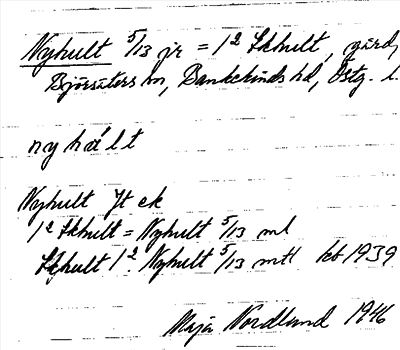 Nyhult 5/13 jr = 1² Ekhult, gård,
Björsäters sn, Bankekinds hd, Östg. l.
nyhált
Nyhult Jt ek
1² Ekhult = Nyhult 5/13 ml
Ekhult 1² Nyhult 5/13 mtl kb 1939
Maja Nordlund 1946